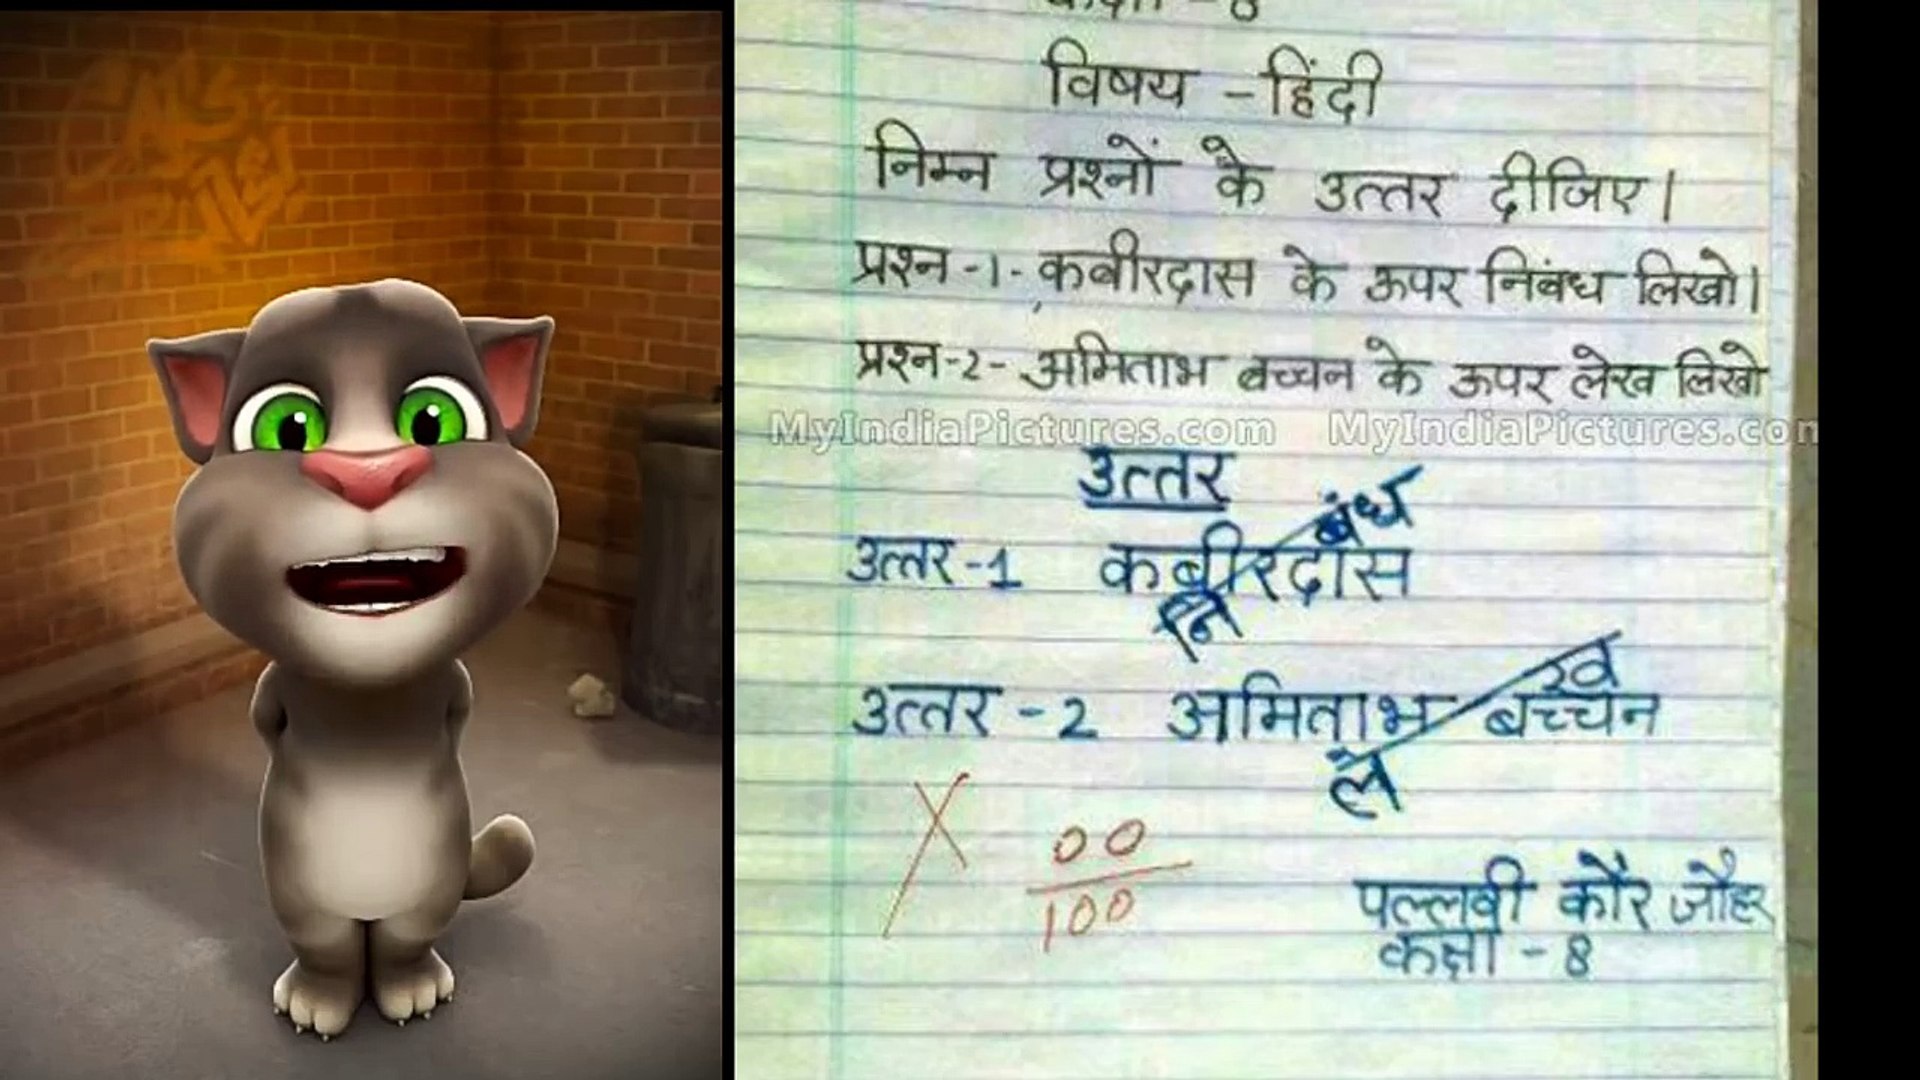 विषय - हिंदी
निम्न प्रश्नों के उत्तर दीजिए।
प्रश्न -1- कबीरदास के ऊपर निबंध लिखो।
प्रश्न-2- अमिताभ बच्चन के ऊपर लेख लिखो
MyIndiaPictures.com MyIndiaPictures.com
उत्तर
बंध
उत्तर-1 कबीरदास
नि
ख
उत्तर-2 अमिताभ बच्चन
ले
X 00
100
पल्लवी कौर जौहर
कक्षा - 8